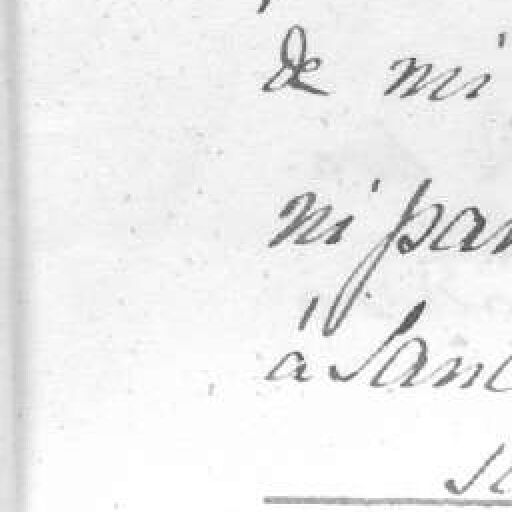 de mi
ni par
á Sanc